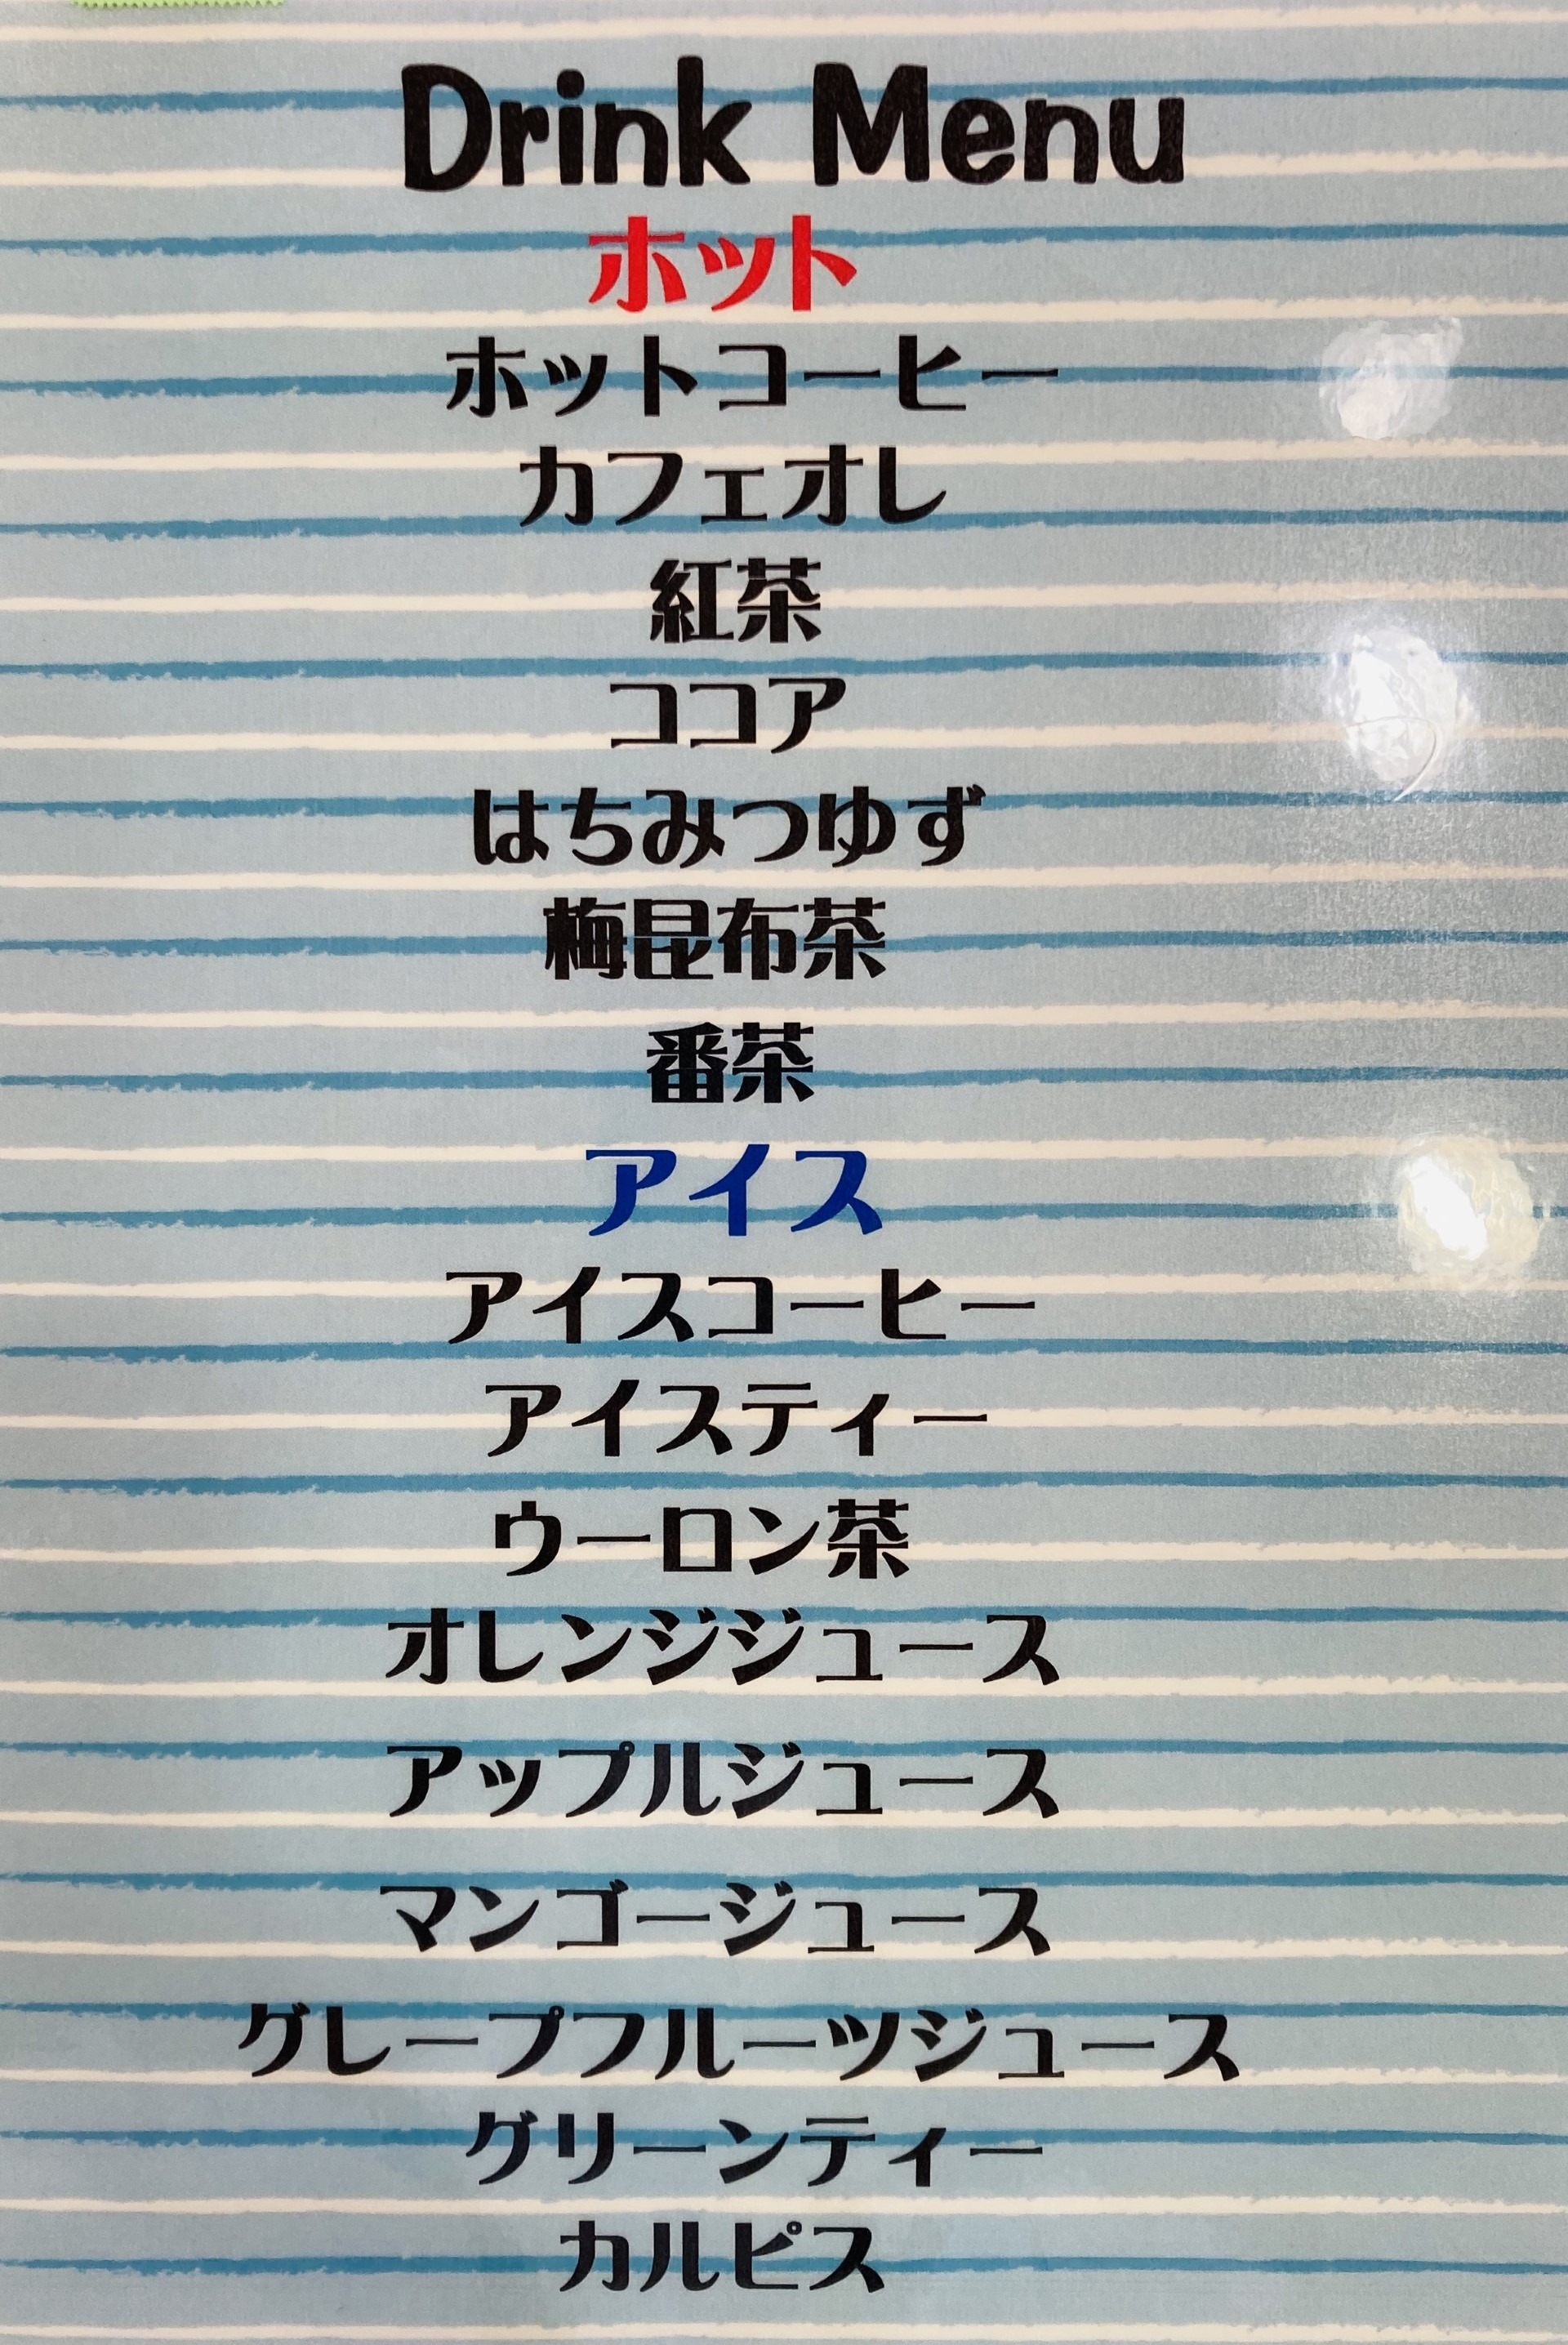 Drink Menu
ホット
ホットコーヒー
カフェオレ
紅茶
ココア
はちみつゆず
梅昆布茶
番茶
アイス
アイスコーヒー
アイスティー
ウーロン茶
オレンジジュース
アップルジュース
マンゴージュース
グレープフルーツジュース
グリーンティー
カルピス